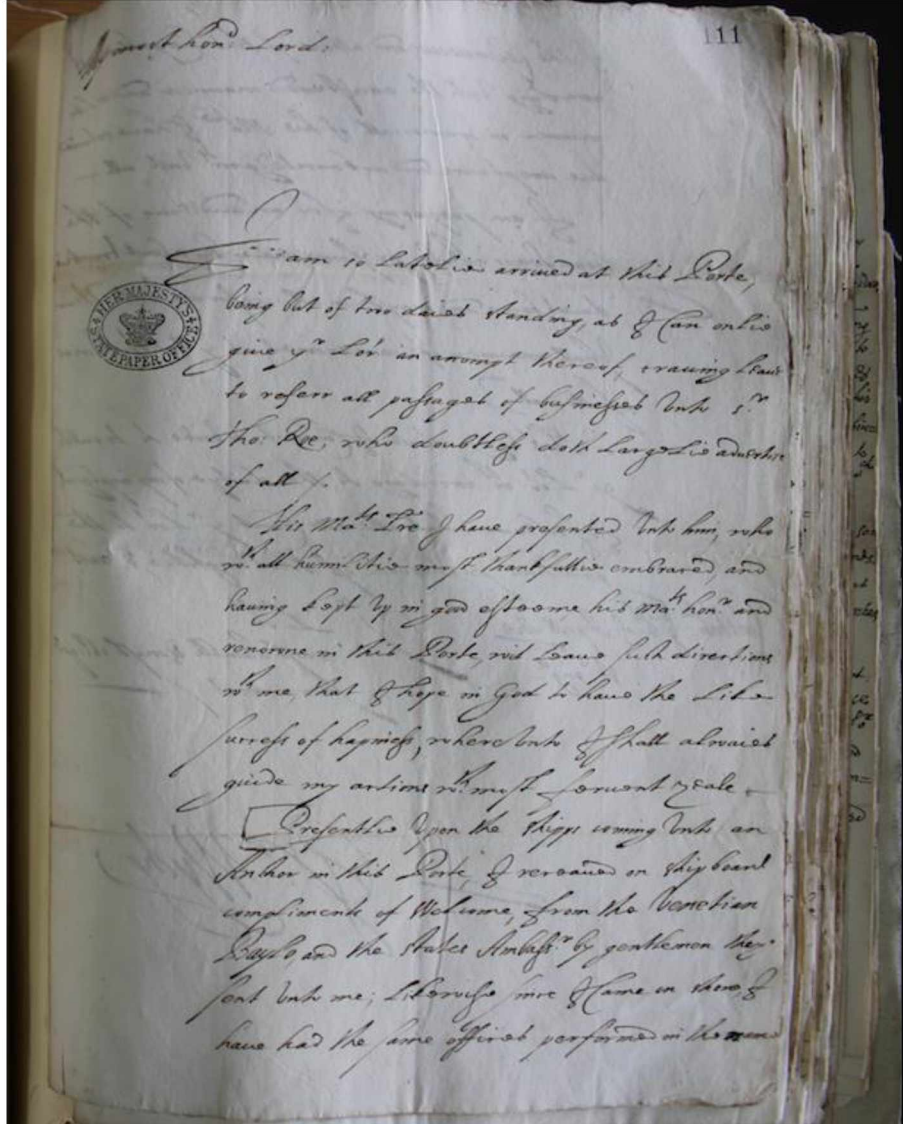 My most hon:d Lord:
111
I am so Latelie arrived at this Porte,
being but of two daies standing, as I Can onlie
give yr Lo:r an accompt thereof, craving Leave
to referr all passages of businesses unto Sr
Tho: Roe; who doubtless doth Largelie advertise
of all /.
HER MAJESTY'S STATE PAPER OFFICE
His Mats: Lre I have presented unto him, who
wth all humilitie most thankfullie embraced, and
having kept up in good esteeme his Mats: honr and
renowne in this Porte, will Leave such directions
wth me, that I hope in God to have the Like
success of hapiness, whereunto I shall alwaies
guide my actions wth most fervent zeale
Presentlie upon the shipps coming unto an
Anchor in this Porte, I receaved on shipboard
compliments of Welcome, from the Venetian
Baylo, and the States Ambassr by gentlemen they
sent unto me; Likewise since I Came on shore, I
have had the same offices performed in the name